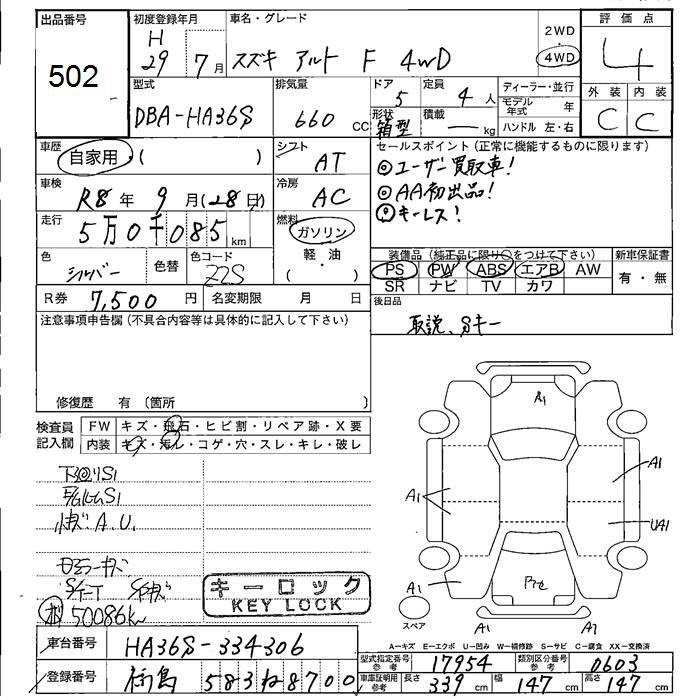 出品番号
502
初度登録年月
H 29年 7月
車名・グレード
スズキ アルト F 4WD
2WD
4WD
評価点
4
型式
DBA-HA36S
排気量
660 CC
ドア
5
定員
4 人
形状
箱型
積載
kg
ディーラー・並行
モデル年式 年
ハンドル 左・右
外装 内装
C C
車歴
自家用・( )
シフト
AT
セールスポイント(正常に機能するものに限ります)
◎ユーザー買取車!
◎AA初出品!
◎キーレス!
車検
R8年 9月(28日)
冷房
AC
走行
5万0千085km
燃料
ガソリン
( 軽・油 )
色
シルバー
色替
色コード
Z2S
装備品(純正品に限り○をつけて下さい)
新車保証書
PS PW ABS エアB AW
SR ナビ TV カワ
有・無
R券 7,500 円
名変期限 月 日
後日品
取説、Sキー
注意事項申告欄(不具合内容等は具体的に記入して下さい)
修復歴 有(箇所 )
検査員記入欄
FW キズ・飛石・ヒビ割・リペア跡・X要
内装 キズ・汚レ・コゲ・穴・スレ・キレ・破レ
下回りS1
A.U.
50086km
キーロック
KEY LOCK
A1
A1
A1
UA1
A1
A1
A1
スペア
A-キズ E-エクボ U-凹み W-補修跡 S-サビ C-腐食 XX-交換済
車台番号 HA36S-334306
型式指定番号 参考 17954
類別区分番号 参考 0603
登録番号 福島 583ね8700
車庫証明用 参考 長さ 339 cm 幅 147 cm 高さ 147 cm